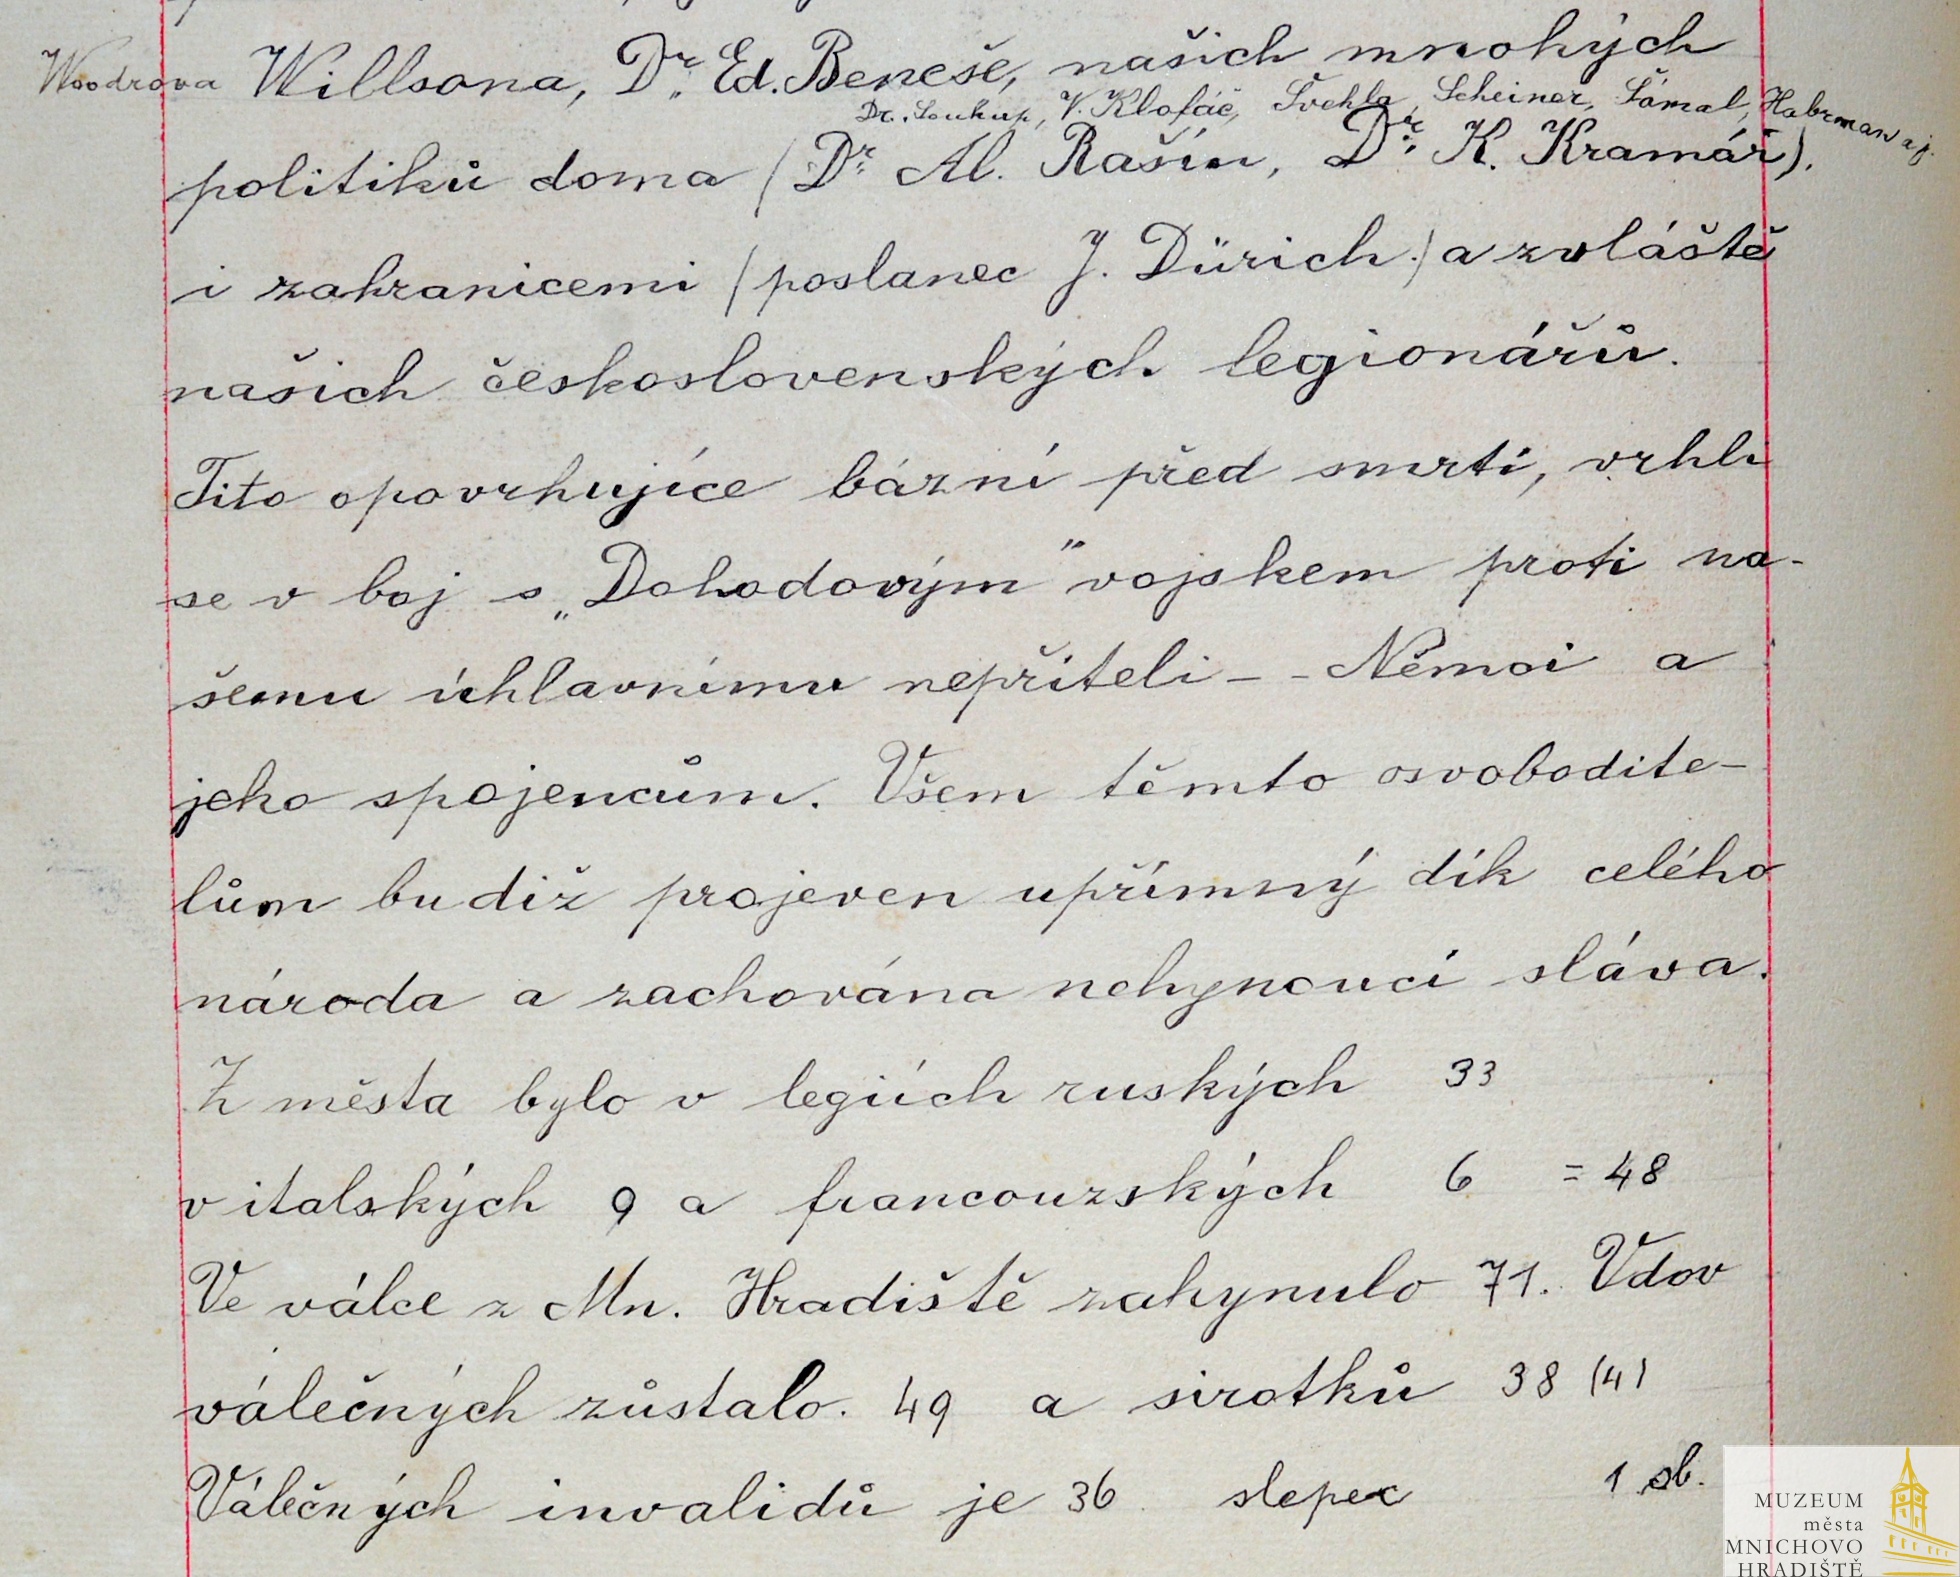 Woodrova Willsona, Dr. Ed. Beneše, našich mnohých
Dr. Soukup, V. Klofáč, Švehla, Scheiner, Šámal, Habrman aj.
politiků doma (Dr Al. Rašín, Dr. K. Kramář).
i zahranicemi (poslanec J. Dürich.) a zvláště
našich československých legionářů.
Tito opovrhujíce bázní před smrtí, vrhli
se v boj s „Dohodovým" vojskem proti na-
šemu úhlavnímu nepříteli - - Němci a
jeho spojencům. Všem těmto osvobodite-
lům budiž projeven upřímný dík celého
národa a zachována nehynoucí sláva.
Z města bylo v legiích ruských 33
v italských 9 a francouzských 6 = 48
Ve válce z Mn. Hradiště zahynulo 71. Vdov
válečných zůstalo. 49 a sirotků 38 (4)
Válečných invalidů je 36 slepec 1 ob.
MUZEUM
města
MNICHOVO
HRADIŠTĚ